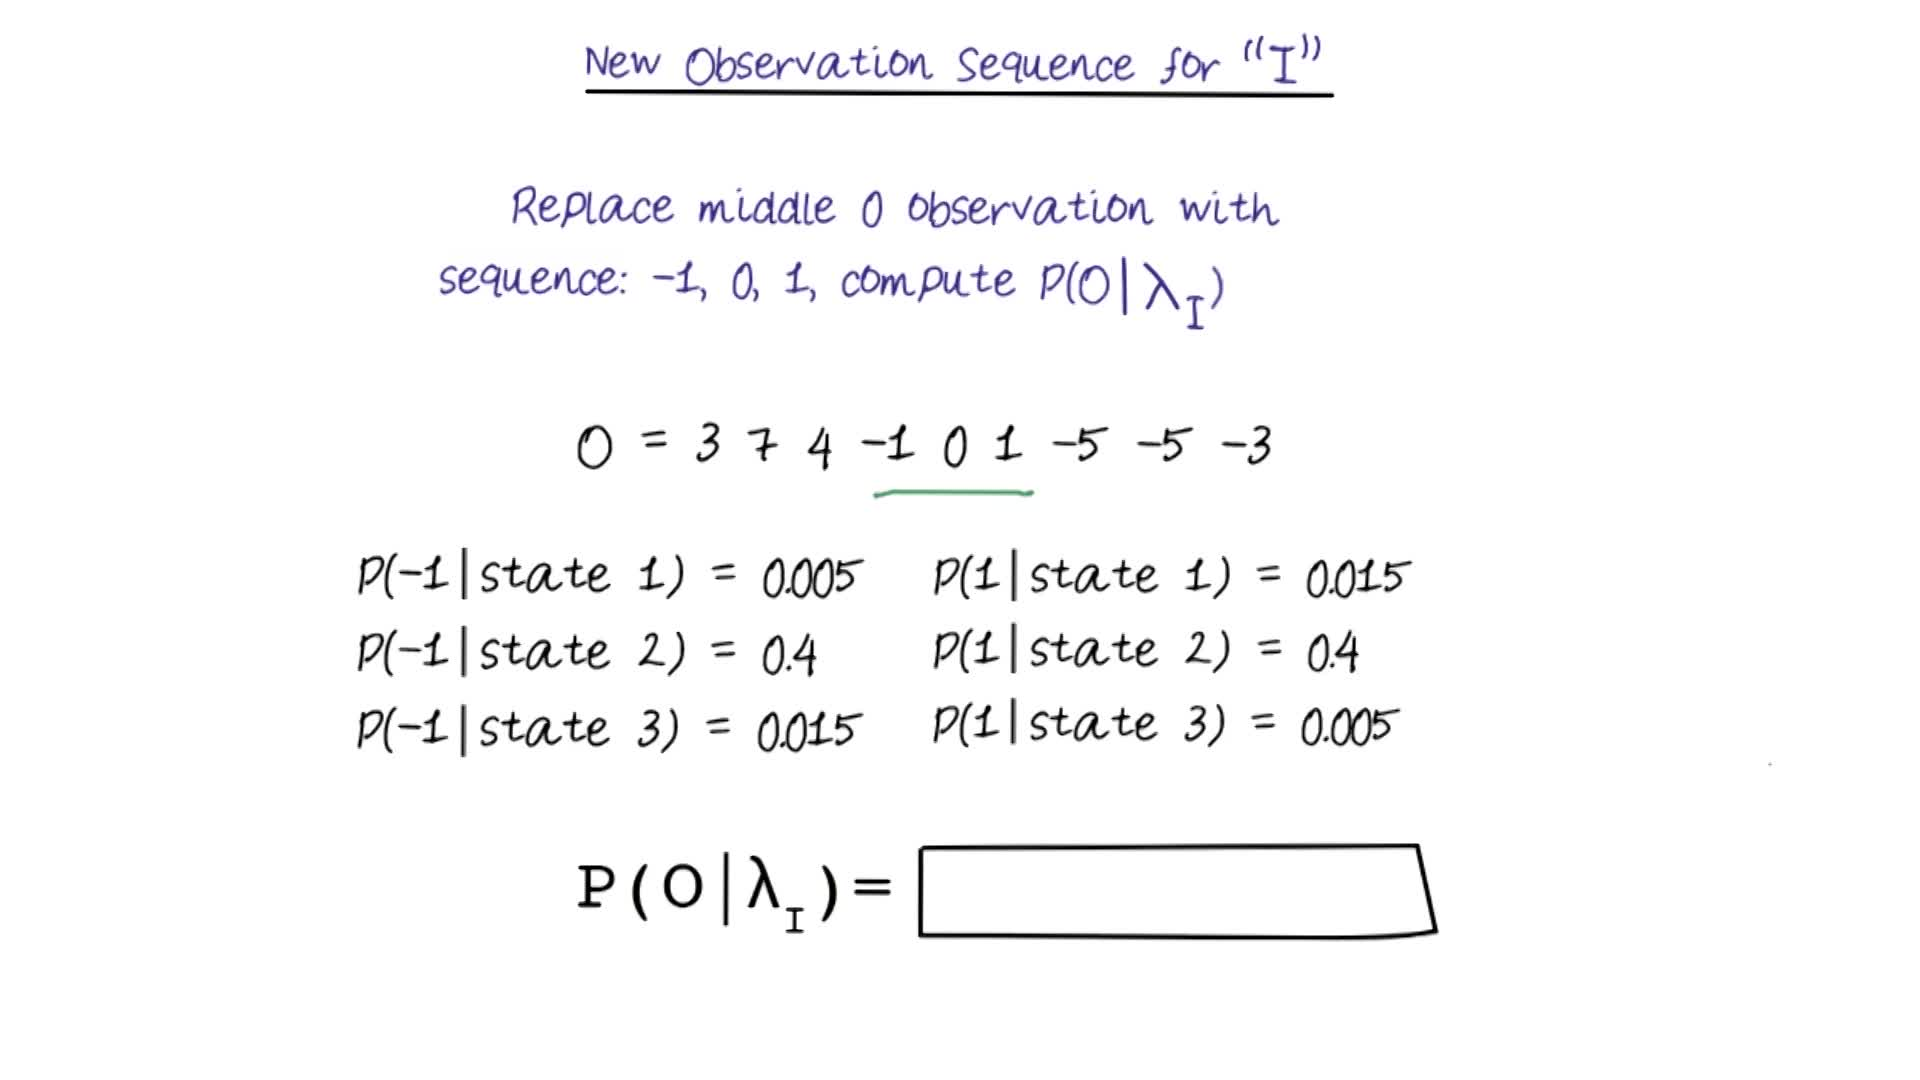 New Observation Sequence for "I"
Replace middle 0 observation with
sequence: -1, 0, 1, compute P(O|λ_I)
O = 3 7 4 -1 0 1 -5 -5 -3
P(-1|state 1) = 0.005 P(1|state 1) = 0.015
P(-1|state 2) = 0.4 P(1|state 2) = 0.4
P(-1|state 3) = 0.015 P(1|state 3) = 0.005
P(O|λ_I)=